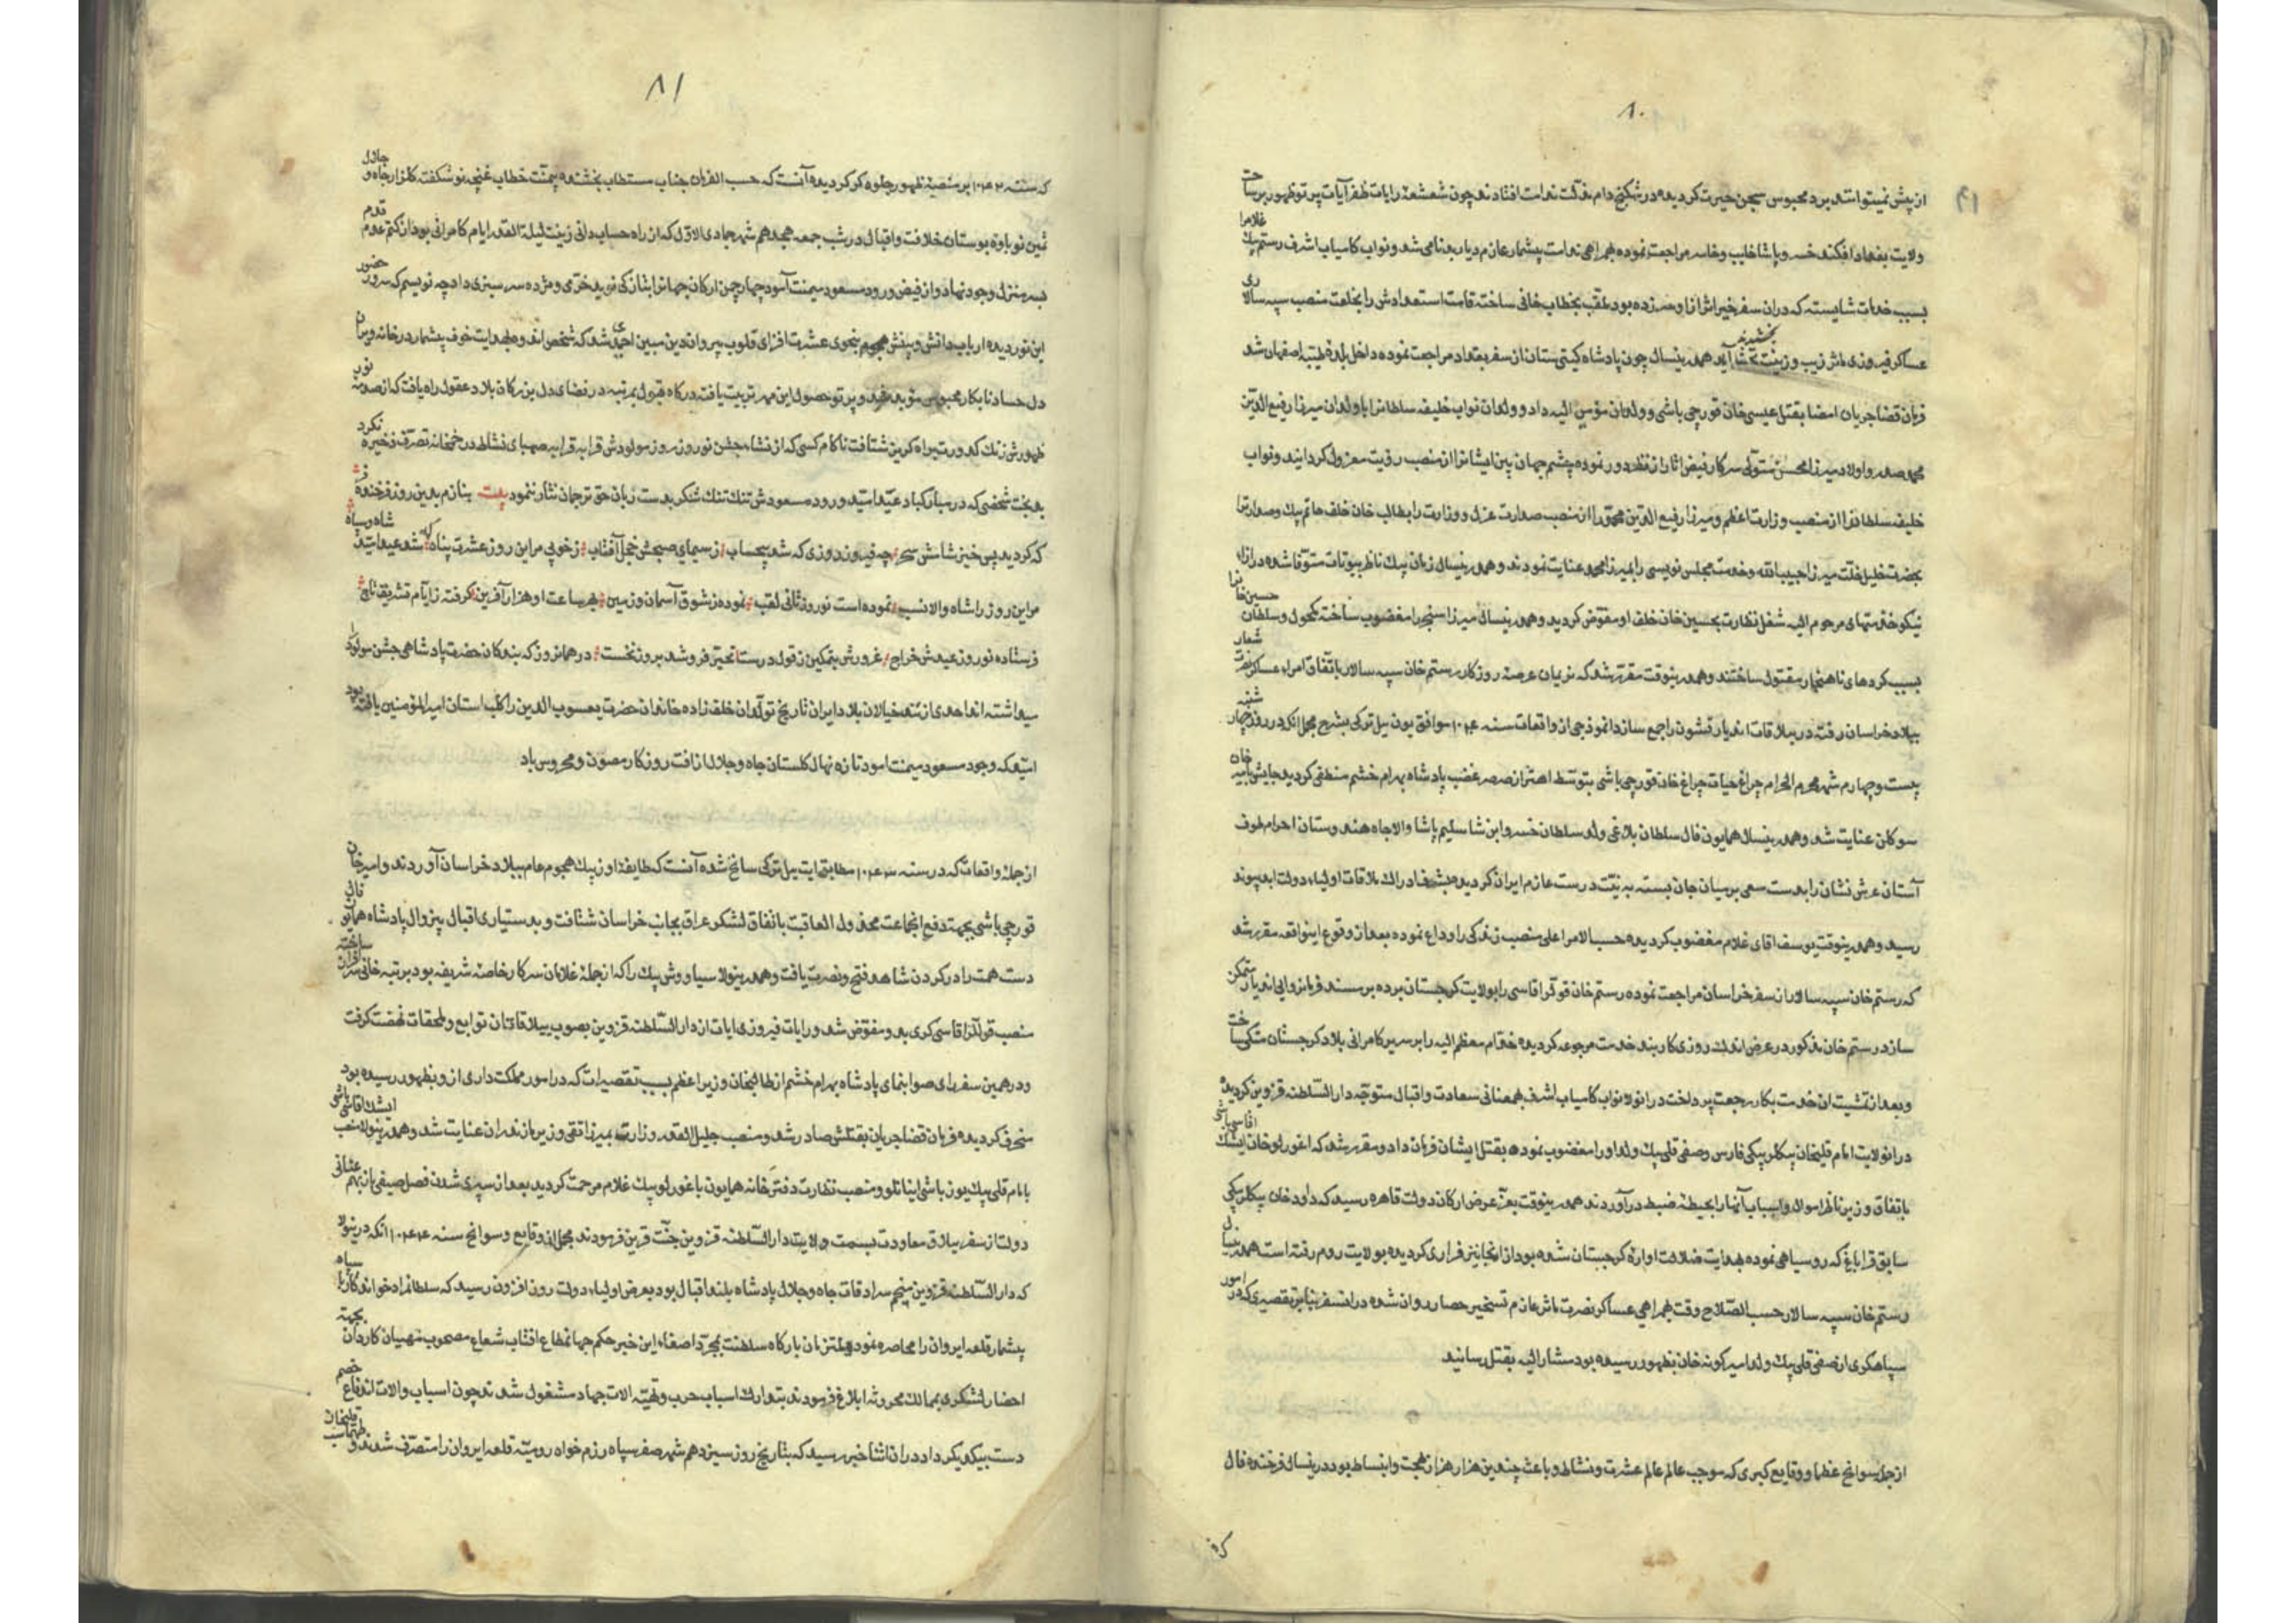 ۸۰
از پیش نمیتواستد برد محبوس سجن حیرت کردیده در شکنج دام مذلت ندامت افتادند چون شعشعهٔ رایات ظفر آیات پرتو ظهور بر ساحت
ولایت بغداد افکند خسرو پاشا خایب و خاسر مراجعت نموده همراهی ندامت بیشمار عازم دیار بدنامی شد و نواب کامیاب اشرف رستم بیک غلام را
بسبب خدمات شایسته که دران سفر خیر اثر ازو سر زده بود بلقب بخطاب خانی ساخته قامت استعدادش را بخلعت منصب سپه سالاری
عساکر فیروزی ماثر زیب و زینت بخشیدند همدرینسال چون پادشاه کیتی ستان از سفر بغداد مراجعت نموده داخل بلدهٔ طیبه اصفهان شد
فرمان قضا جریان امضا بقتل عیسی خان قورچی باشی و ولدان مؤمی الیه داد و ولدان نواب خلیفه سلطانرا با ولدان میرزا رفیع الدین
محمد صدر و اولاد میرزا محسن متولی سرکار فیض اثار را از نظر دور نموده چشم جهان بین ایشانرا از منصب رؤیت معزول کردانید و نواب
خلیفه سلطانرا از منصب وزارت اعظم و میرزا رفیع الدین محمد را از منصب صدارت عزل و وزارت را بطالب خان خلف حاتم بیک و صدارترا
بحضرت خلیل خلت میرزا حبیب الله و خدمت مجلس نویسی را بمیرزا محمد عنایت نمودند و همدرینسال زمان بیک ناظر بیوتات متوفا شده در ازاء
نیکو خدمتهای مرحوم الیه شغل نظارت بحسین خان خلف او مفوض کردید و همدرینسال میرزا سنجر را مغضوب ساخته مکحول و سلطان حسین خانرا
بسبب کردهای ناهنجار مقتول ساختند و همدرینوقت مقرر شد که نریمان عرصهٔ روزکار رستم خان سپه سالار باتفاق امراء عساکر نصرت شعار
ببلاد خراسان رفته در ییلاقات اندیار قشون را جمع سازد انموذجی از واقعات سنه ۱۰۴۱ موافق یونت ییل ترکی بشرح مجمل انکه در روز چهار شنبه
بیست و چهارم شهر محرم الحرام چراغ حیات چراغ خان قورچی باشی بتوسط اهتزاز صرصر غضب پادشاه بهرام خشم منطفی کردید جایش بامیر خان
سوکلن عنایت شد و همدرینسال همایون فال سلطان بلاغی ولد سلطان خسرو ابن شا سلیم پاشا والا جاه هندوستان احرام طوف
آستان عرش نشان را بدست سعی بر میان جان بسته به نیت درست عازم ایران کردید بشرف ادراک ملاقات اولیاء دولت ابد پیوند
رسید و همدرینوقت یوسف اقای غلام مغضوب کردیده حسب الامر اعلی منصب زندکی را وداع نموده بعد از وقوع اینواقعه مقرر شد
که رستم خان سپه سالار از سفر خراسان مراجعت نموده رستم خان قوللر اقاسی را بولایت کرجستان برده بر مسند فرمانروایی اندیار متمکن
سازد رستم خان مذکور در عرض اندک روزی کاربند خدمت مرجوعه کردیده خدام معظم الیه را بر سریر کامرانی بلاد کرجستان متکی ساخت
و بعد از تمشیت ان خدمت بکار رجعت پرداخت درانولا نواب کامیاب اشرف بهمعنانی سعادت و اقبال متوجه دار السلطنه قزوین کردیده
درانولایت امام قلیخان بیکلربیکی فارس و صفی قلی بیک ولد او را مغضوب نموده بقتل ایشان فرمان داد و مقرر شد که اغورلو خان ایشک اقاسی باشی
باتفاق وزیر ناظر اموال و اسباب آنها را بحیطهٔ ضبط درآوردند همدرینوقت بعز عرض ارکان دولت قاهره رسید که داود خان بیکلربیکی
سابق قراباغ که روسیاهی نموده بهدایت ضلالت اوارهٔ کرجستان شده بود از انجا نیز فراری کردیده بولایت روم رفته است همدرینسال
رستم خان سپه سالار حسب الصلاح وقت همراهی عساکر نصرت ماثر عازم تسخیر حصار روان شده در انسفر بنابر تقصیری که در امور
سپاهکری از صفی قلی بیک ولد امیر کونه خان بظهور رسیده بود مشار الیه بقتل رسانید
از جمله سوانح عظما و وقایع کبری که موجب عالم عالم عشرت و نشاط و باعث چندین هزار هزار بهجت و انبساط بود درینسال فرخنده فال
۸۱
که سنه ۱۰۴۲ بر منصهٔ ظهور جلوه کر کردیده آنست که حسب الفرمان جناب مستطاب بخشنده بیمنت خطاب غنچهٔ نوشکفته کلزار جاه و جلال
ثمین نوباوهٔ بوستان خلافت و اقبال در شب جمعه هجدهم شهر جمادی الاول که از راه حساب دانی زینت لیلة القدر ایام کامرانی بود از کتم عدم قدم
بسر منزل وجود نهاد و از فیض ورود مسعود میمنت آمود چهار چمن ارکان جهانرا بشارتی نوید خرمی و مژده سرسبزی داد چه نویسم که سرور حضور
این نوردیده ارباب دانش و بینش بنحوی عشرت افزای قلوب پیروان دین مبین احمدی شد که شخص اندوه بهدایت خوف بیشمار در خانه ویران
دل حساد نابکار محبوس نوبد شد و پرتو حصول این مهر تربیت یافته درکاه قبول بمرتبه در فضای دل بزرکان بلاد عقول راه یافت که از صدمهٔ نور
ظهورش زنک کدورت بیراه کریز شتافت ناکام کسی که از نشاء جشن نوروز روز مولودش قرابه قرابه صهبای نشاط در خمخانه تصرف ذخیره نکرد
بدبخت شخصی که در مبارکباد عید امید ورود مسعودش تنک تنک شکر بدست زبان حق ترجمان نثار ننمود بیت بنازم بدین روز فرخنده فش
که کردید پی خیز شامش سحر چه فیروز روزی که شد بیحساب ز سیمای صبحش خجل آفتاب ز خوبی مر این روز عشرت پناه که شد عید امید شاه و سپاه
مر این روز را شاه والا نسب نموده است نوروز ثانی لقب نموده ز شوق آسمان و زمین بهر ساعت او هزار آفرین کرفته ز ایام تشریف تاج
فرستاده نوروز عیدش خراج غرورش بتمکین ز قول درست تحیر فروشد بروز نخست در همانروز که بندکان حضرت پادشاهی جشن مولود را
میداشته اند احدی از تند خیالان بلاد ایران تاریخ تولد ان خلف زاده خاندان حضرت یعسوب الدین را کلب استان امیر المؤمنین یافته بود
امید که وجود مسعود میمنت امود تازه نهال کلستان جاه و جلال از افت روزکار مصون و محروس باد
از جملهٔ واقعات که در سنه ۱۰۴۳ مطابق ایت ییل ترکی سانح شده آنست که طایفهٔ اوزبیک هجوم عام ببلاد خراسان آوردند و امیر خان
قورچی باشی بجهت دفع انجماعت مخذول العاقبت باتفاق لشکر عراق بجانب خراسان شتافت و بدستیاری اقبال بیزوال پادشاه همایون فال
دست همت را در کردن شاهد فتح و نصرت یافت و همدرینولا سیاووش بیک را که از جملهٔ غلامان سرکار خاصهٔ شریفه بود بمرتبه خانی سرافراز ساخته
منصب قوللر اقاسی کری بدو مفوض شد و رایات فیروزی ایات از دار السلطنه قزوین بصوب ییلاقات ان توابع و ملحقات نهضت کرفت
و در همین سفر رای صوابنمای پادشاه بهرام خشم از طالبخان وزیر اعظم بسبب تقصیرات که در امور مملکت داری ازو بظهور رسیده بود
منحرف کردیده فرمان قضا جریان بقتلش صادر شد و منصب جلیل القدر وزارت بمیرزا تقی وزیر مازندران عنایت شد و همدرینولا منصب ایشک اقاسی باشی
بامام قلی بیک یوزباشی اینانلو و منصب نظارت دفتر خانه همایون باغورلو بیک غلام مرحمت کردید بعد از سپری شدن فصل صیفی بهم عنانی
دولت از سفر ییلاق معاودت بسمت ولایت دار السلطنه قزوین جنت قرین فرمودند مجملی از وقایع و سوانح سنه ۱۰۴۴ انکه درینولا
که دار السلطنه قزوین مخیم سرادقات جاه و جلال پادشاه بلند اقبال بود بعرض اولیاء دولت روز افزون رسید که سلطانمراد خواندکار با سپاه
بیشمار قلعه ایروان را محاصره نمود ملتزمان بارکاه سلطنت بمجرد اصغاء این خبر حکم جهانمطاع افتاب شعاع مصحوب منهیان کاردان بجهته
احضار لشکری بممالک محروسه ابلاغ فرمودند بتدارک اسباب حرب و تهیهٔ الات جهاد مشغول شدند چون اسباب والات اندفاع خصم
دست بیکدیکر داد در ان اثنا خبر رسید که بتاریخ روز سیزدهم شهر صفر سپاه رزم خواه رومیه قلعه ایروان را متصرف شدند و طهماسب قلیخان